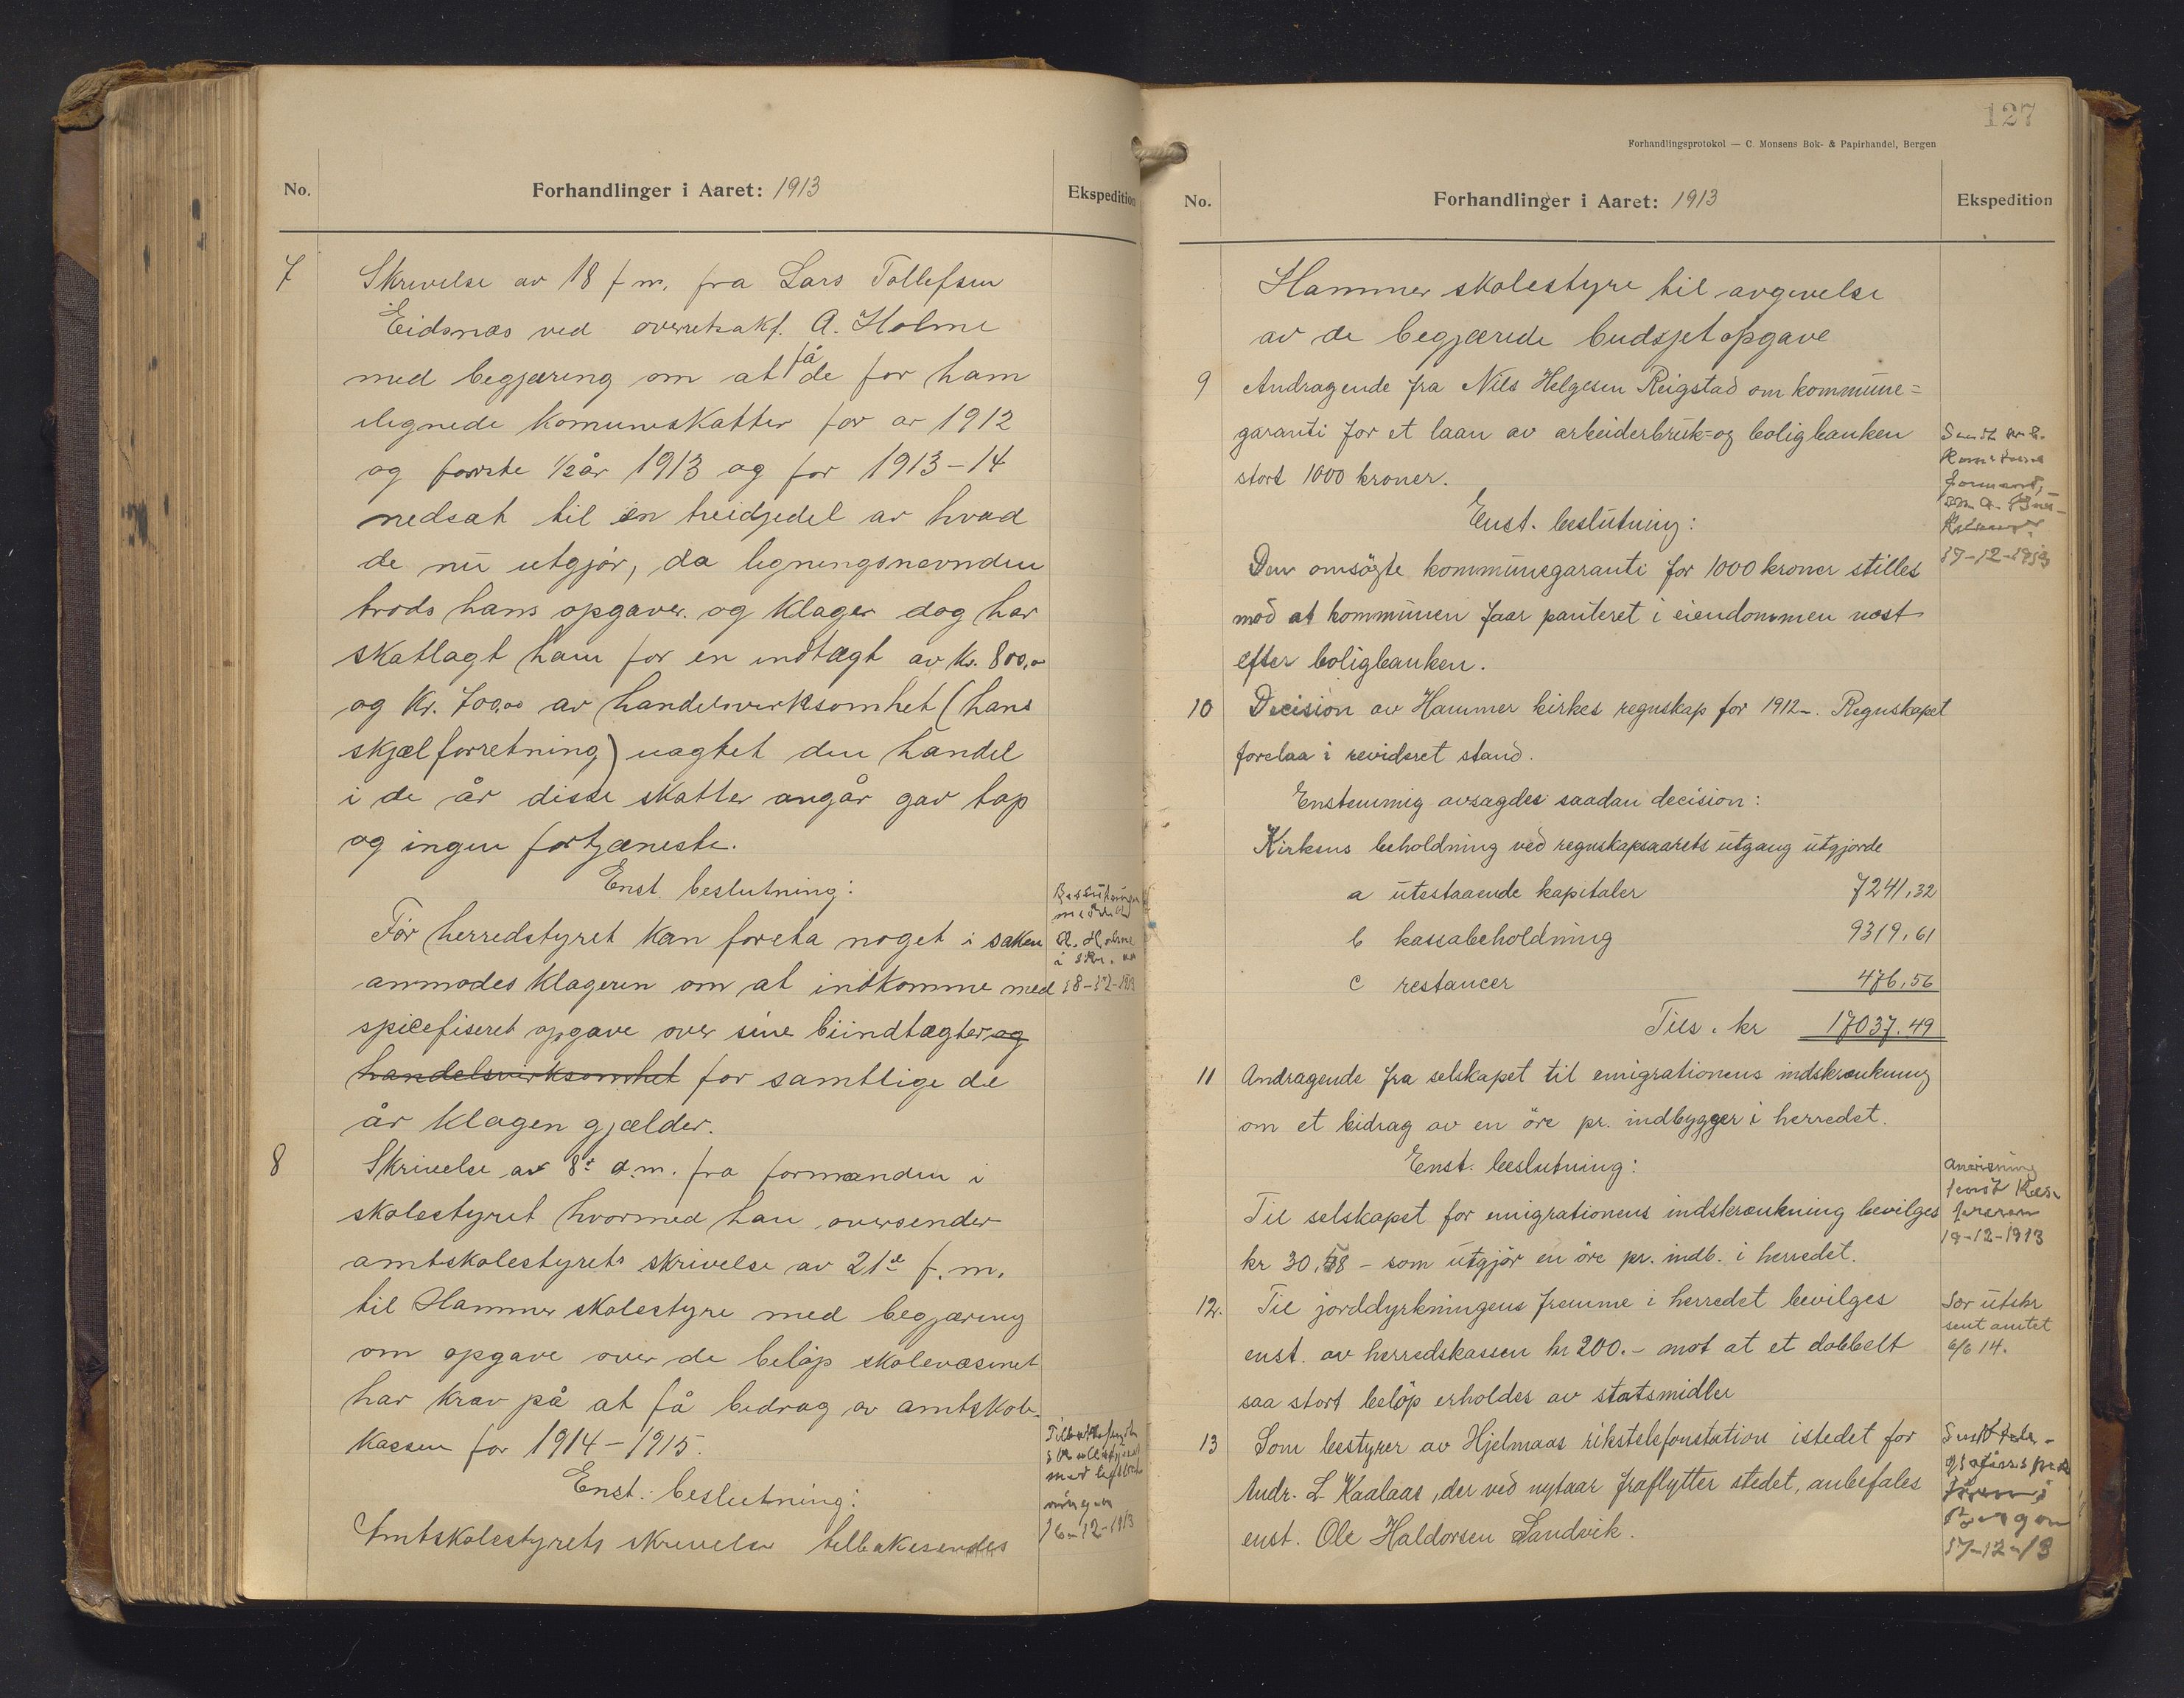 No.
Forhandlinger i Aaret: 1913
Ekspedition
7
Skrivelse av 18 f m. fra Lars Tollefsen
Eidsnæs ved overretssakf. A. Holme
med begjæring om at få de for ham
ilegnede komuneskatter for år 1912
og første 1/2 år 1913 og for 1913–14
nedsat til én treidjedel av hvad
de nu utgjør, da ligningsnevnden
trods hans opgaver og klager dog har
skatlagt ham for en indtægt av kr. 800,00
og kr. 700,00 av handelsvirksomhet (hans
skjælforretning) uagtet den handel
i de år disse skatter angår gav tap
og ingen fortjæneste.
Enst. beslutning:
Før herredstyret kan foreta noget i saken
anmodes klageren om at indkomme med
spicefiseret opgave over sine biindtægter og
handelsvirksomhet for samtlige de
år klagen gjælder.
Beslutningen
meddelt
A. Holme
i skr. av
18-12-1913
8
Skrivelse av 8de d.m. fra formanden i
skolestyret hvormed han oversender
amtskolestyrets skrivelse av 21de f. m.
til Hammer skolestyre med begjæring
om opgave over de beløp skolevæsenet
har krav på at få bidrag av amtskole-
kassen for 1914–1915.
Enst. beslutning:
Amtskolestyrets skrivelse tilbakesendes
16-12-1913
127
Forhandlingsprotokol — C. Monsens Bok- & Papirhandel, Bergen
No.
Forhandlinger i Aaret: 1913
Ekspedition
Hammer skolestyre til avgivelse
av de begjærede budsjetopgave
9
Andragende fra Nils Helgesen Reigstad om kommune=
garanti for et laan av arbeiderbruk= og boligbanken
stort 1000 kroner.
Enst. beslutning:
Den omsögte kommunegaranti for 1000 kroner stilles
mod at kommunen faar panteret i eiendommen næst
efter boligbanken.
Sendt
formand,
17-12-1913
10
Decision av Hammer kirkes regnskap for 1912–. Regnskapet
forelaa i revideret stand.
Enstemmig avsagdes saadan decision:
Kirkens beholdning ved regnskapsaarets utgang utgjorde
a utestaaende kapitaler 7241,32
b kassabeholdning 9319,61
c restancer 476,56
Tils. kr 17037.49
11
Andragende fra selskapet til emigrationens indskrænkning
om et bidrag av en öre pr. indbygger i herredet.
Enst. beslutning:
Til selskapet for emigrationens indskrænkning bevilges
kr 30,58 – som utgjör en öre pr. indb. i herredet.
Anvisning
sendt
18-12-1913
12.
Til jorddyrkningens fremme i herredet bevilges
enst. av herredskassen kr 200.– mot at et dobbelt
saa stort belöp erholdes av statsmidler
Sær utskr
sent amtet
6/6 14.
13
Som bestyrer av Hjelmaas rikstelefonstation istedet for
Andr. L. Kaalaas, der ved nytaar fraflytter stedet, anbefales
enst. Ole Haldorsen Sandvik.
Sendt tele-
Bergen
17-12-13